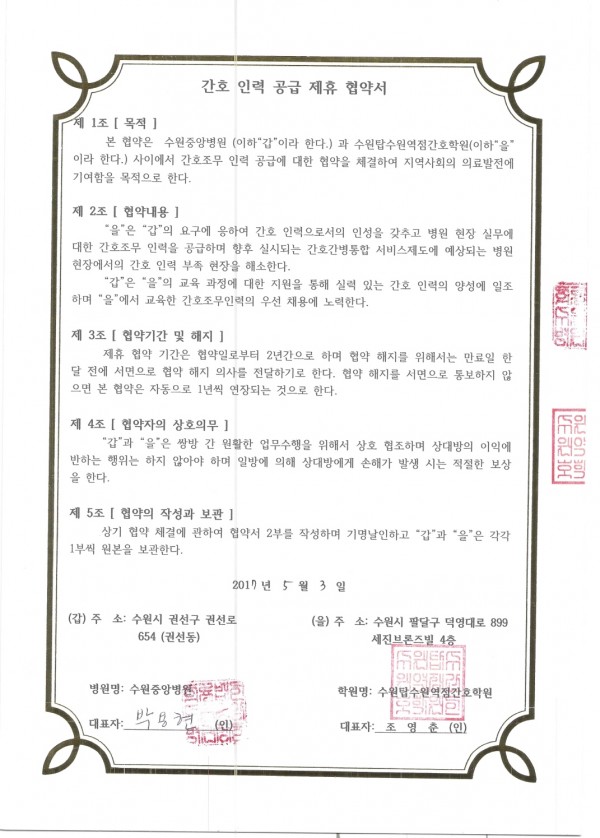 간호 인력 공급 제휴 협약서
제 1조 [ 목적 ]
본 협약은 수원중앙병원 (이하“갑”이라 한다.) 과 수원탑수원역점간호학원(이하“을”
이라 한다.) 사이에서 간호조무 인력 공급에 대한 협약을 체결하여 지역사회의 의료발전에
기여함을 목적으로 한다.
제 2조 [ 협약내용 ]
“을”은 “갑”의 요구에 응하여 간호 인력으로서의 인성을 갖추고 병원 현장 실무에
대한 간호조무 인력을 공급하며 향후 실시되는 간호간병통합 서비스제도에 예상되는 병원
현장에서의 간호 인력 부족 현장을 해소한다.
“갑”은 “을”의 교육 과정에 대한 지원을 통해 실력 있는 간호 인력의 양성에 일조
하며 “을”에서 교육한 간호조무인력의 우선 채용에 노력한다.
제 3조 [ 협약기간 및 해지 ]
제휴 협약 기간은 협약일로부터 2년간으로 하며 협약 해지를 위해서는 만료일 한
달 전에 서면으로 협약 해지 의사를 전달하기로 한다. 협약 해지를 서면으로 통보하지 않
으면 본 협약은 자동으로 1년씩 연장되는 것으로 한다.
제 4조 [ 협약자의 상호의무 ]
“갑”과 “을”은 쌍방 간 원활한 업무수행을 위해서 상호 협조하며 상대방의 이익에
반하는 행위는 하지 않아야 하며 일방에 의해 상대방에게 손해가 발생 시는 적절한 보상
을 한다.
제 5조 [ 협약의 작성과 보관 ]
상기 협약 체결에 관하여 협약서 2부를 작성하며 기명날인하고 “갑”과 “을”은 각각
1부씩 원본을 보관한다.
2017년 5 월 3 일
(갑) 주 소: 수원시 권선구 권선로
654 (권선동)
(을) 주 소: 수원시 팔달구 덕영대로 899
세진브론즈빌 4층
병원명: 수원중앙병원
학원명: 수원탑수원역점간호학원
대표자: 박용현 (인)
대표자: 조 영 춘 (인)